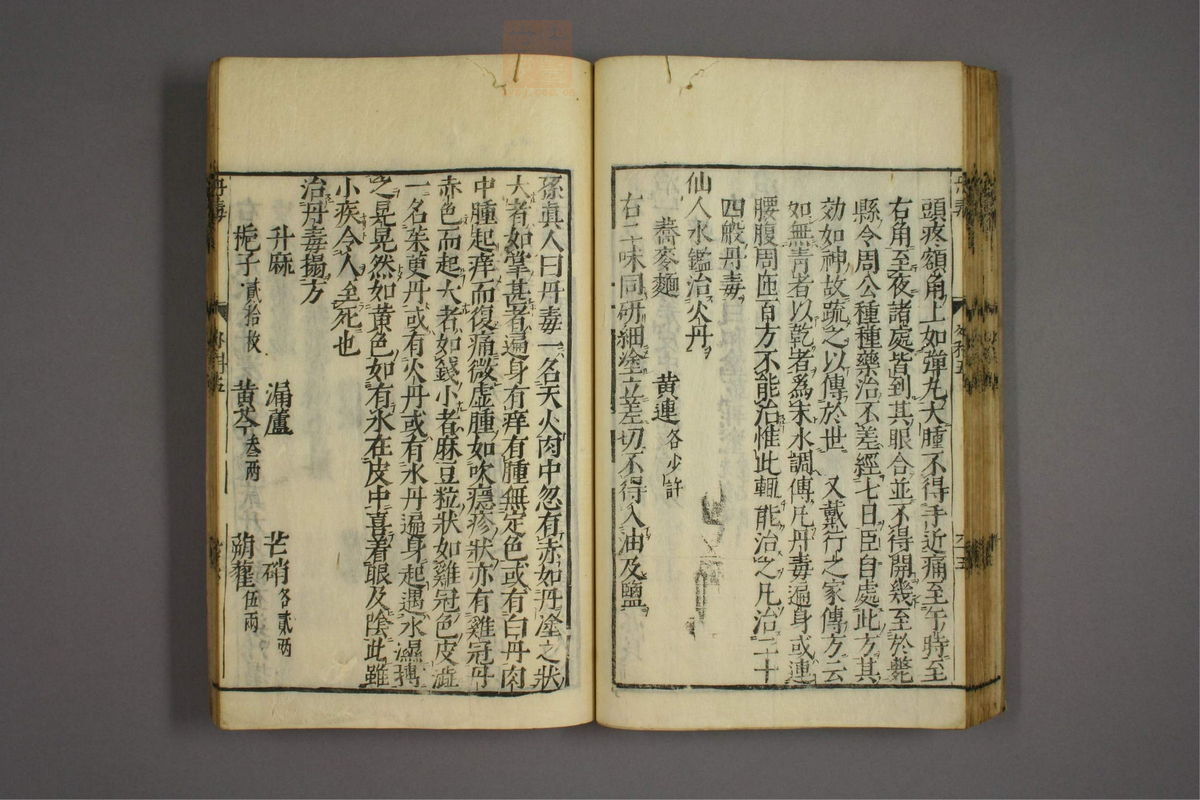 頭疼額角上如弾丸大腫不得手近痛至午時至
右角至夜諸處皆到其眼合並不得開幾至於斃
縣令周公種種藥治不差經七日臣自處此方其
効如神故疏之以傳於世 又戴行之家傳方云
如無青者以乾者為末水調傅凡丹毒遍身或連
腰腹周匝百方不能治惟此輒能治之凡治二十
四般丹毒
仙人水鑑治火丹
蕎麥麵 黄連各少許
右二味同研細塗立差切不得入油及鹽
孫真人曰丹毒一名天火肉中忽有赤如丹塗之狀
大者如掌甚者遍身有痒有腫無定色或有白丹肉
中腫起痒而復痛微虚腫如吹癮疹狀亦有雞冠丹
赤色而起大者如錢小者麻豆粒狀如雞冠色皮澁
一名茱萸丹或有火丹或有水丹遍身起遇水濕搏
之晃晃然如黄色如有水在皮中喜着眼及陰此雖
小疾令人至死也
治丹毒搨方
升麻 漏蘆 芒硝各貳两
梔子貳拾枚 黄芩叁两 蒴藋伍两